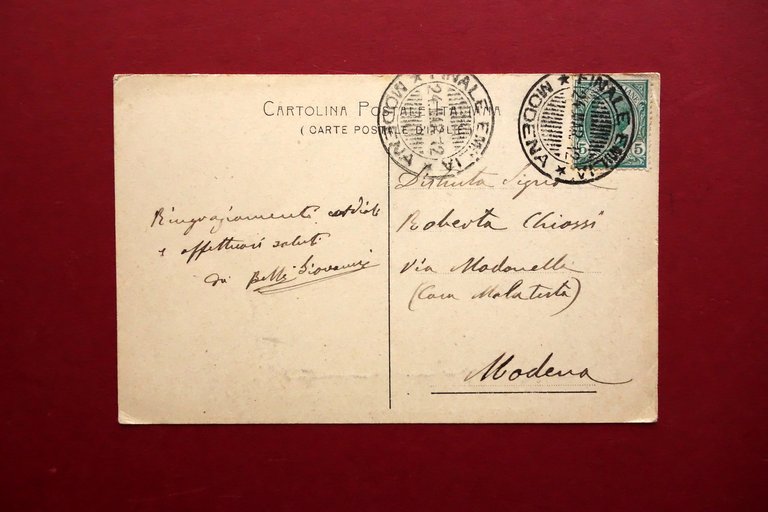 CARTOLINA POSTALE ITALIANA
(CARTE POSTALE D'ITALIE)
FINALE EMILIA
MODENA
FINALE EMILIA
MODENA
5 5
Ringraziamenti cordiali
e affettuosi saluti
da Belli Giovanni
Distinta Sigra
Roberta Chiossi
Via Modonella
(Casa Malatesta)
Modena